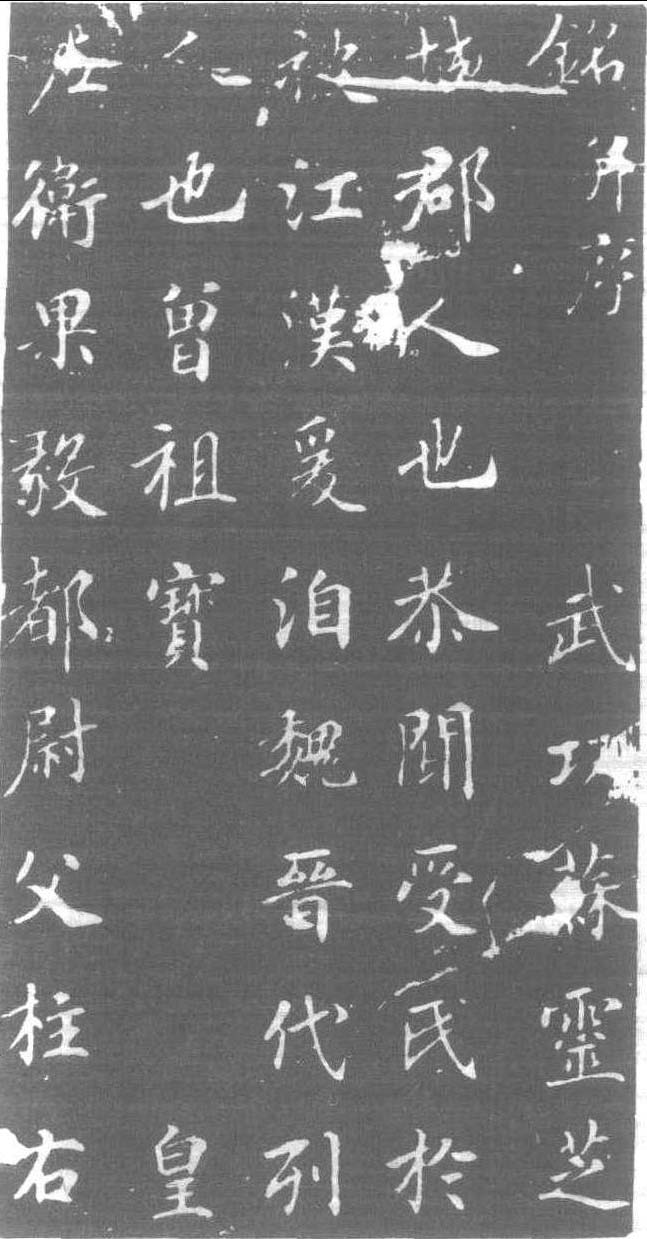 銘并序 武功蘇靈芝
城郡人也恭聞受氏於
江漢爰洎魏晉代列
也曾祖寶 皇
左衛果毅都尉父柱右